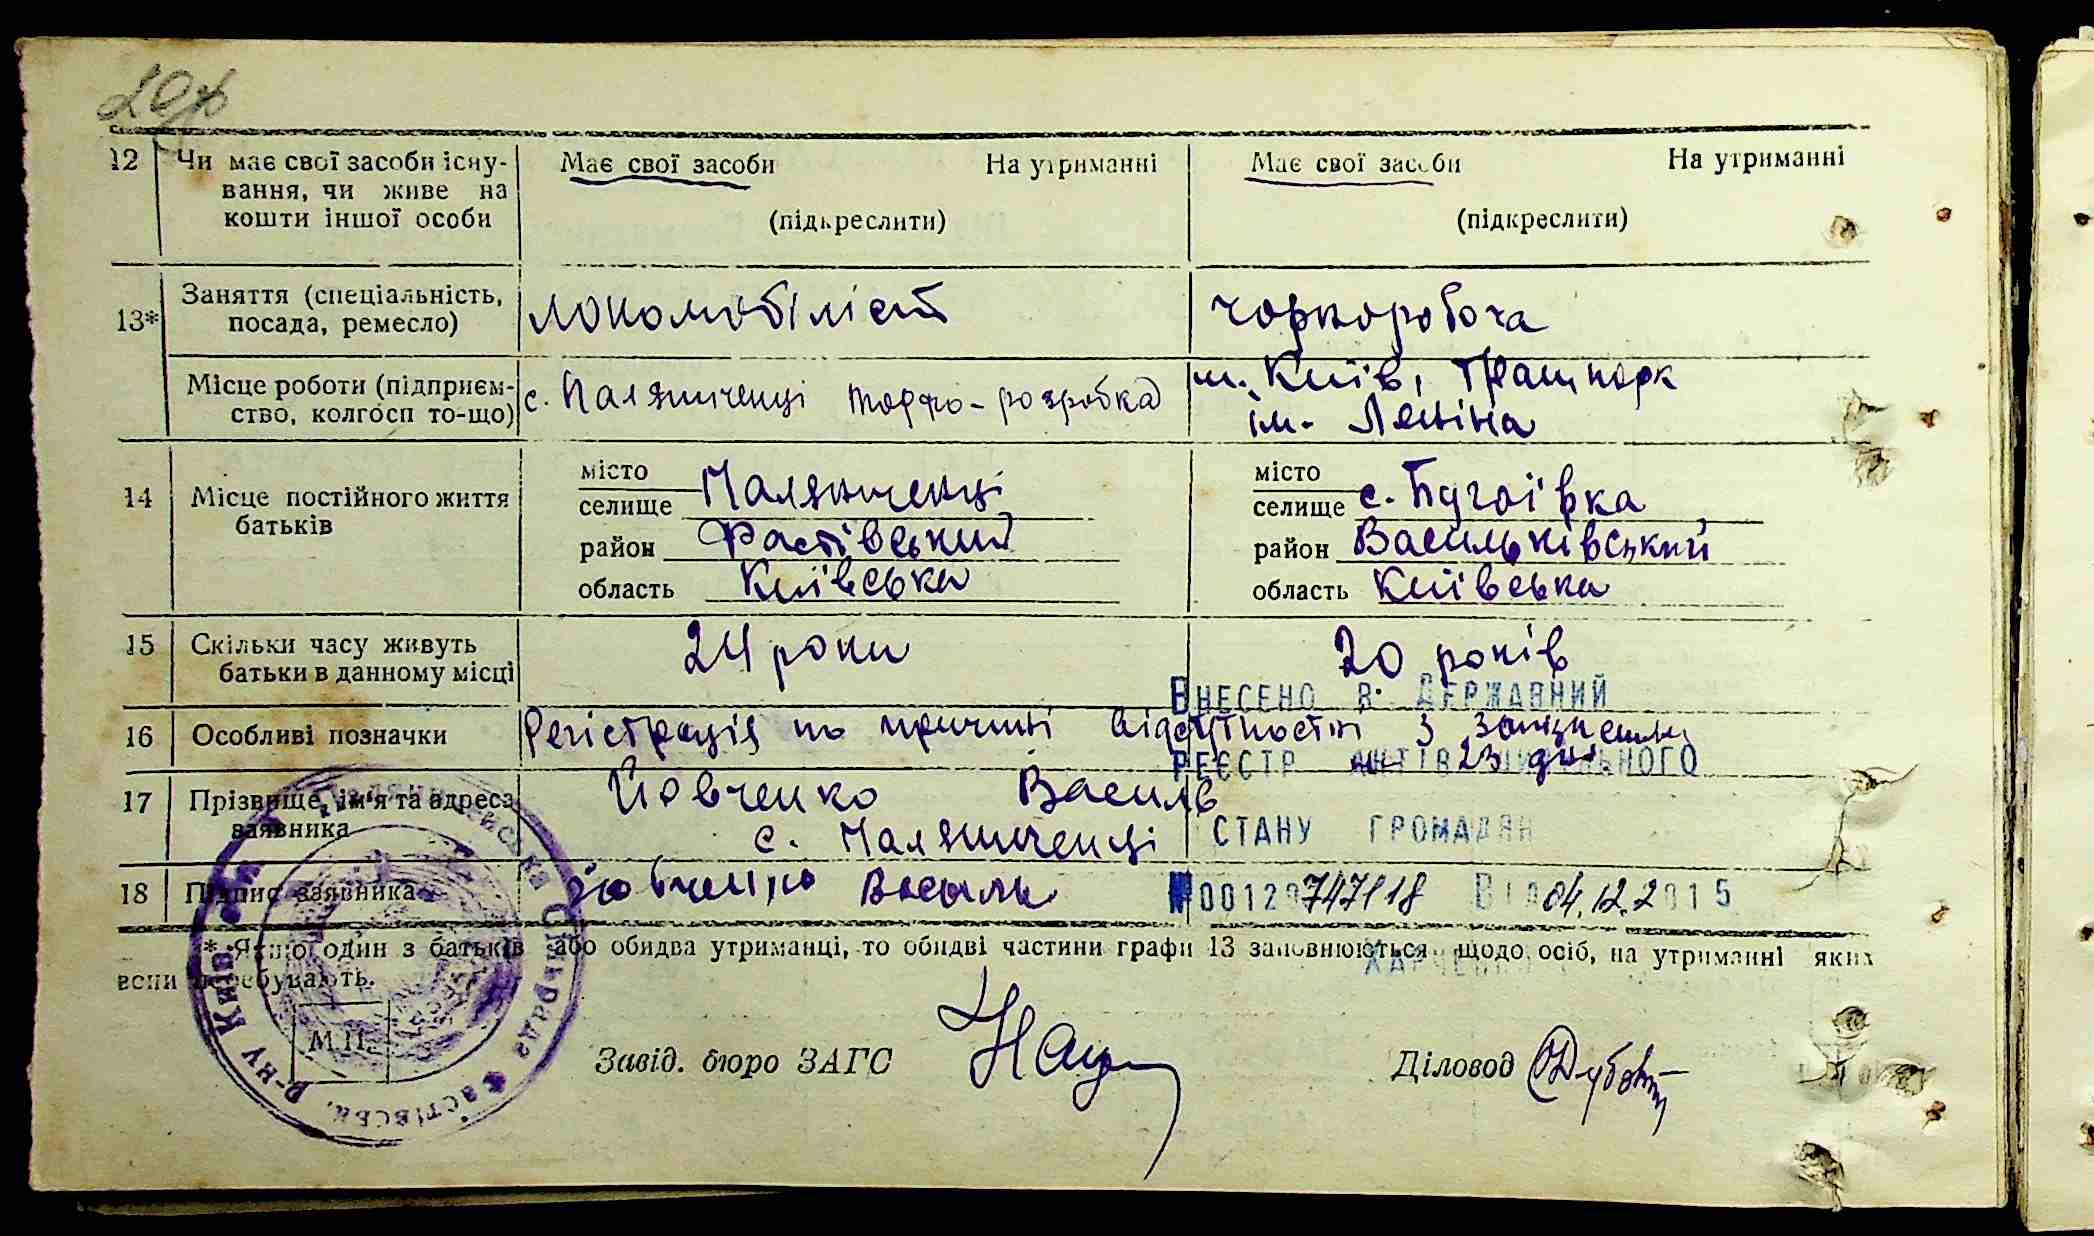 12 Чи має свої засоби існу-
вання, чи живе на
кошти іншої особи
Має свої засоби На утриманні
(підкреслити)
Має свої засоби На утриманні
(підкреслити)
13* Заняття (спеціальність,
посада, ремесло)
локомобіліст
чорноробоча
Місце роботи (підприєм-
ство, колгосп то-що)
с. Паляниченці торфо-розробка
м. Київ, Трампарк
ім. Леніна
14 Місце постійного життя
батьків
місто
селище Паляниченці
район Фастівський
область Київська
місто
селище с. Бугаївка
район Васильківський
область Київська
15 Скільки часу живуть
батьки в данному місці
24 роки
20 років
ВНЕСЕНО В ДЕРЖАВНИЙ
16 Особливі позначки
Регістрація по причині відсутності з запізненням
23 дні
РЕЄСТР АКТІВ ЦИВІЛЬНОГО
17 Прізвище, ім'я та адреса
заявника
Йовченко Василь
с. Паляниченці
СТАНУ ГРОМАДЯН
18 Підпис заявника
Йовченко Василь
№ 00120747118 ВІД 04.12.2015
* Якщо один з батьків або обидва утриманці, то обидві частини графи 13 заповнюються щодо осіб, на утриманні яких
вени перебувають.
ХАРЧЕНКО
М.П.
Завід. бюро ЗАГС
Діловод